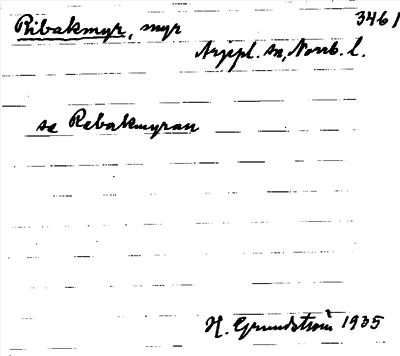 Ribakmyr, myr 3461
Arjepl. sn, Norrb. l.
se Rebakmyran
H. Grundström 1935